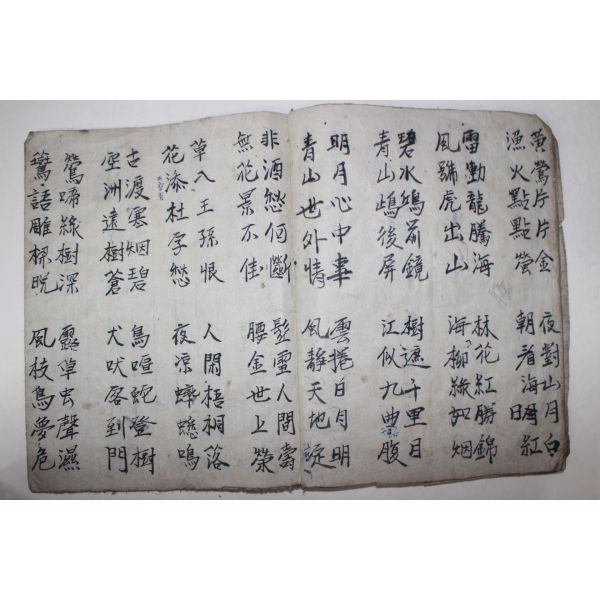 黃鶯片片金 夜對山月白
漁火點點螢 朝看海日紅
雷動龍騰海 林花紅勝錦
風號虎出山 海柳綠如烟
碧水鷗前鏡 樹遮千里目
青山後屏 江似九曲腹
明月心中事 雲捲日月明
青山世外情 風靜天地定
非酒愁何斷 髮靈人間壽
無花景不佳 腰金世上榮
草入王孫恨 人閑梧桐落
花添杜宇愁 夜凉蟀蟋鳴
古渡寒烟碧 鳥喧蛇登樹
空洲遠樹蒼 犬吠客到門
鶯啼綠樹深 露草虫聲濕
鷰語雕樑晩 風枝鳥夢危